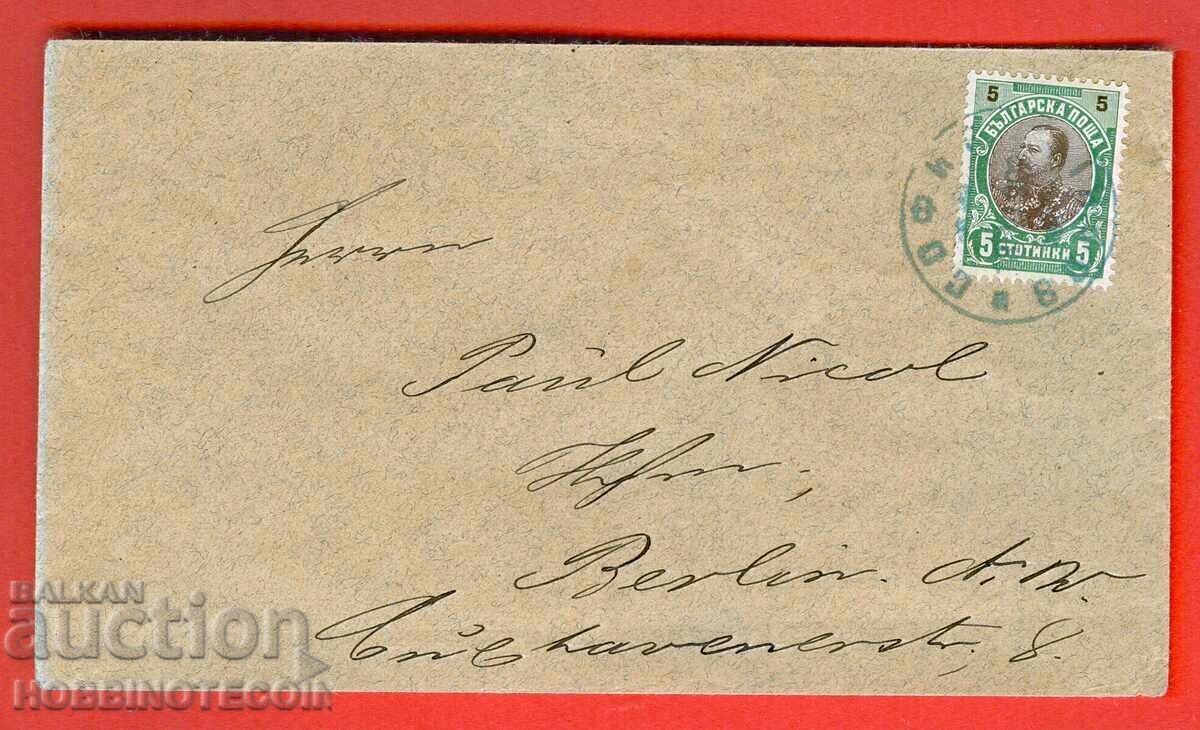 5 5
БЪЛГАРСКА ПОЩА
5 СТОТИНКИ 5
СОФИ
Herrn
Paul Nicol
Kfm,
Berlin. N.W.
Cuxhavenerstr, 8.
BALKAN
auction
HOBBINOTECOIN